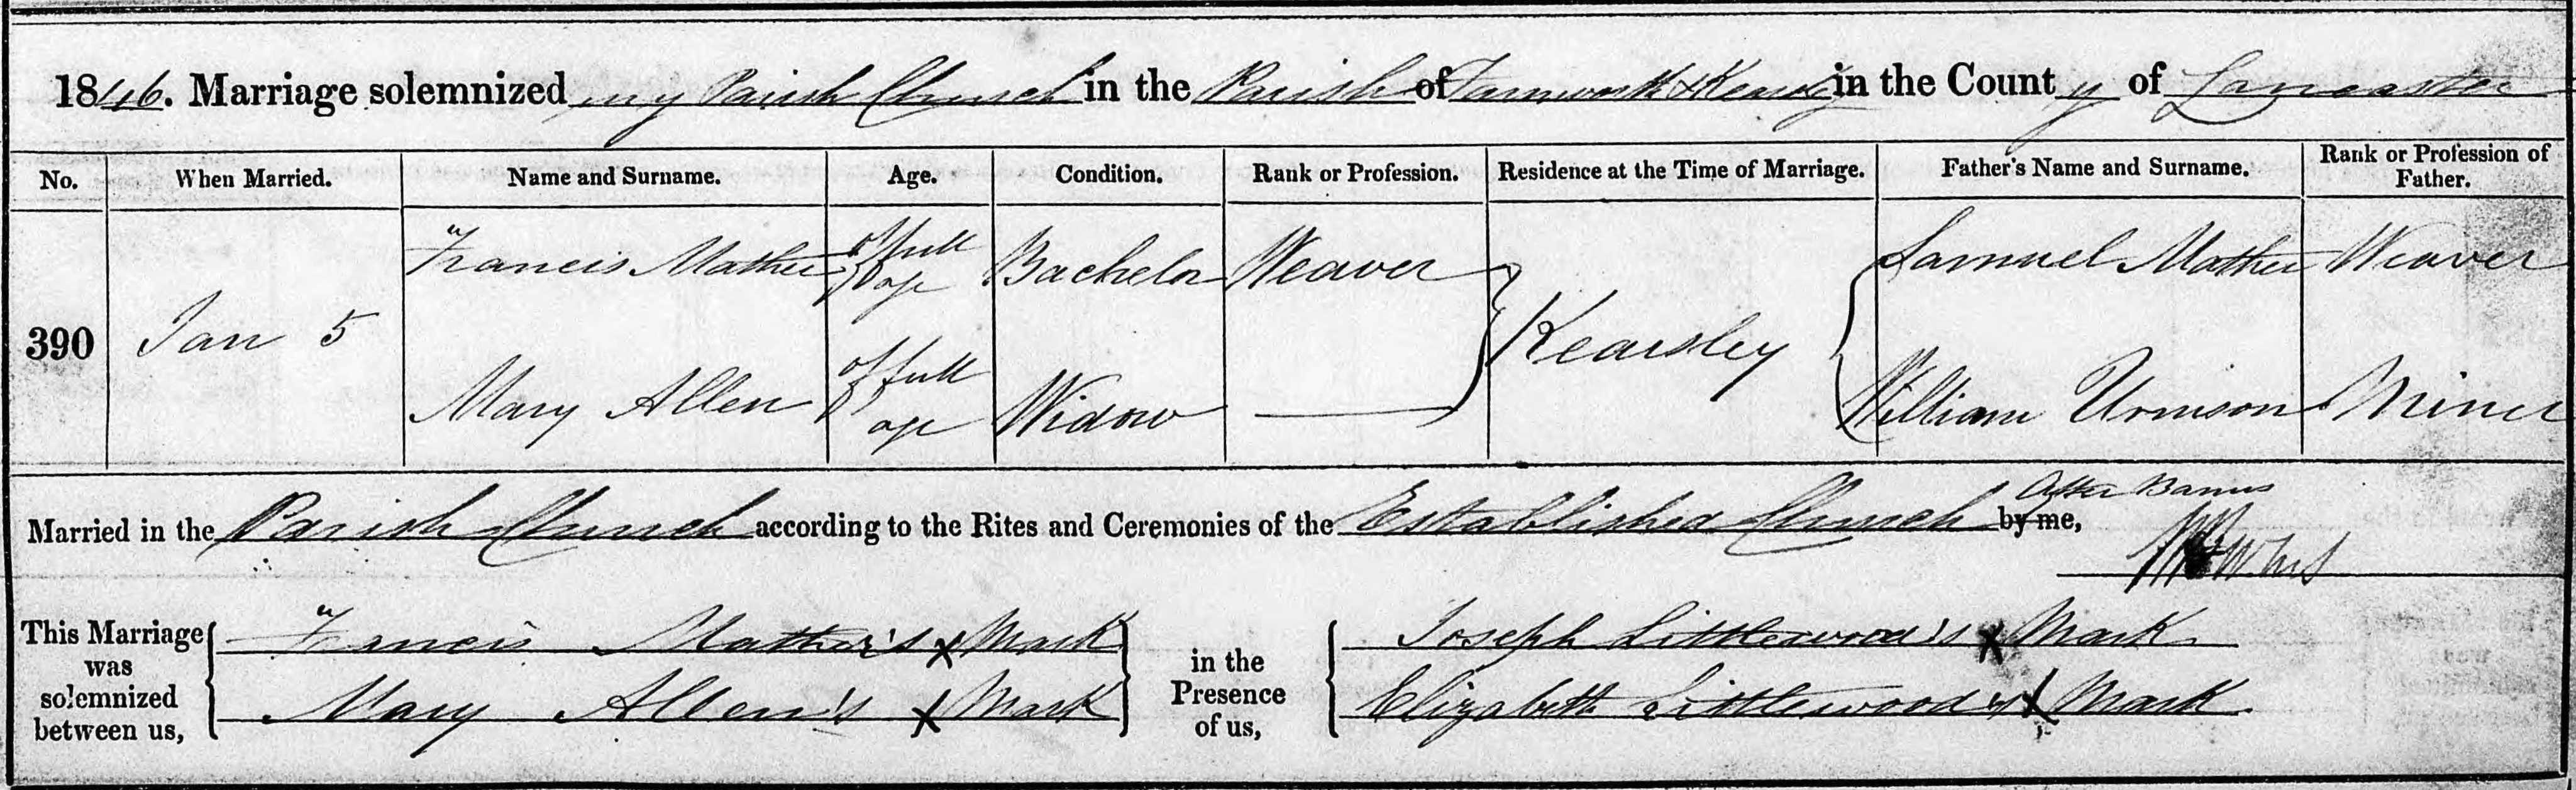 1846. Marriage solemnized my Parish Church in the Parish of Farnworth & Kearsley in the County of Lancaster
No. When Married. Name and Surname. Age. Condition. Rank or Profession. Residence at the Time of Marriage. Father's Name and Surname. Rank or Profession of Father.
390 Jan 5
Francis Mather of full age Bachelor Weaver Kearsley Samuel Mather Weaver
Mary Allen of full age Widow — William Urmson Miner
After Banns
Married in the Parish Church according to the Rites and Ceremonies of the Established Church by me,
This Marriage was solemnized between us,
Francis Mather's X Mark
Mary Allen's X Mark
in the Presence of us,
Joseph Littlewood's X Mark
Elizabeth Littlewood's X Mark